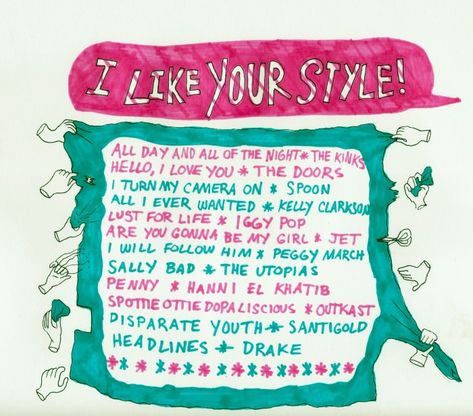 I LIKE YOUR STYLE!
ALL DAY AND ALL OF THE NIGHT * THE KINKS
HELLO, I LOVE YOU * THE DOORS
I TURN MY CAMERA ON * SPOON
ALL I EVER WANTED * KELLY CLARKSON
LUST FOR LIFE * IGGY POP
ARE YOU GONNA BE MY GIRL * JET
I WILL FOLLOW HIM * PEGGY MARCH
SALLY BAD * THE UTOPIAS
PENNY * HANNI EL KHATIB
SPOTTIE OTTIE DOPALISCIOUS * OUTKAST
DISPARATE YOUTH * SANTIGOLD
HEADLINES * DRAKE